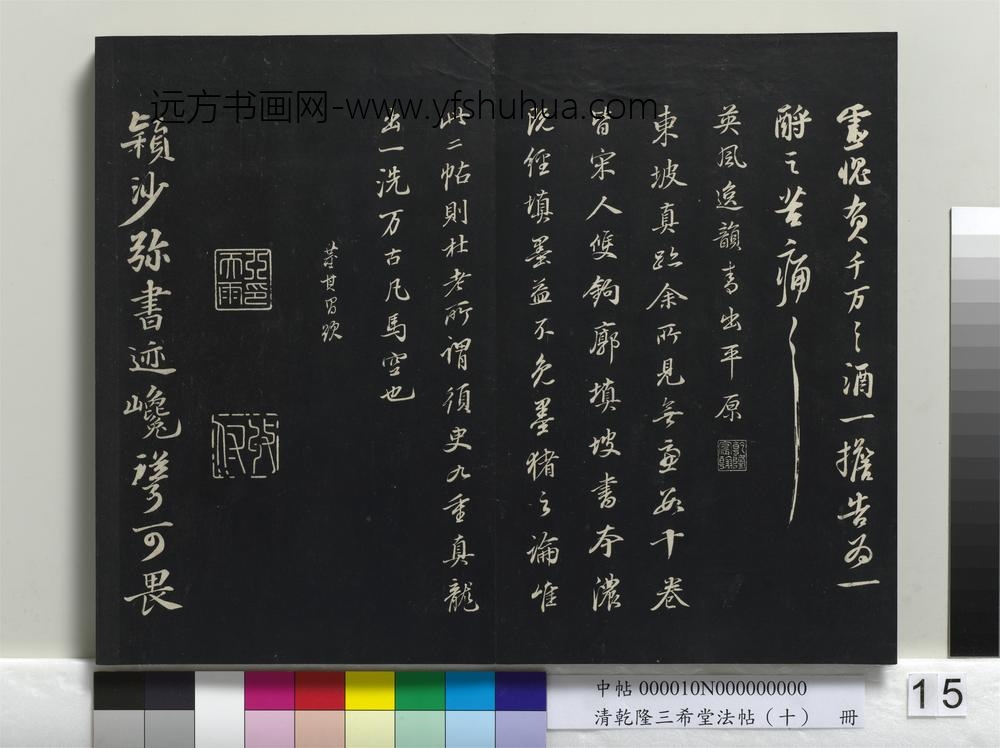 靈愧負千万〻酒一擔告为一
酹之苦痛〻
英風逸韻書出平原
乾隆宸翰
東坡真跡余所見無慮數十卷
皆宋人雙鉤廓填坡書本濃
既經填墨益不免墨豬之論唯
此二帖則杜老所謂須臾九重真龍
出一洗万古凡馬空也
董其昌題
潁沙弥書迹巉聳可畏
远方书画网-www.yfshuhua.com
中帖 000010N000000000
清乾隆三希堂法帖（十） 冊
15